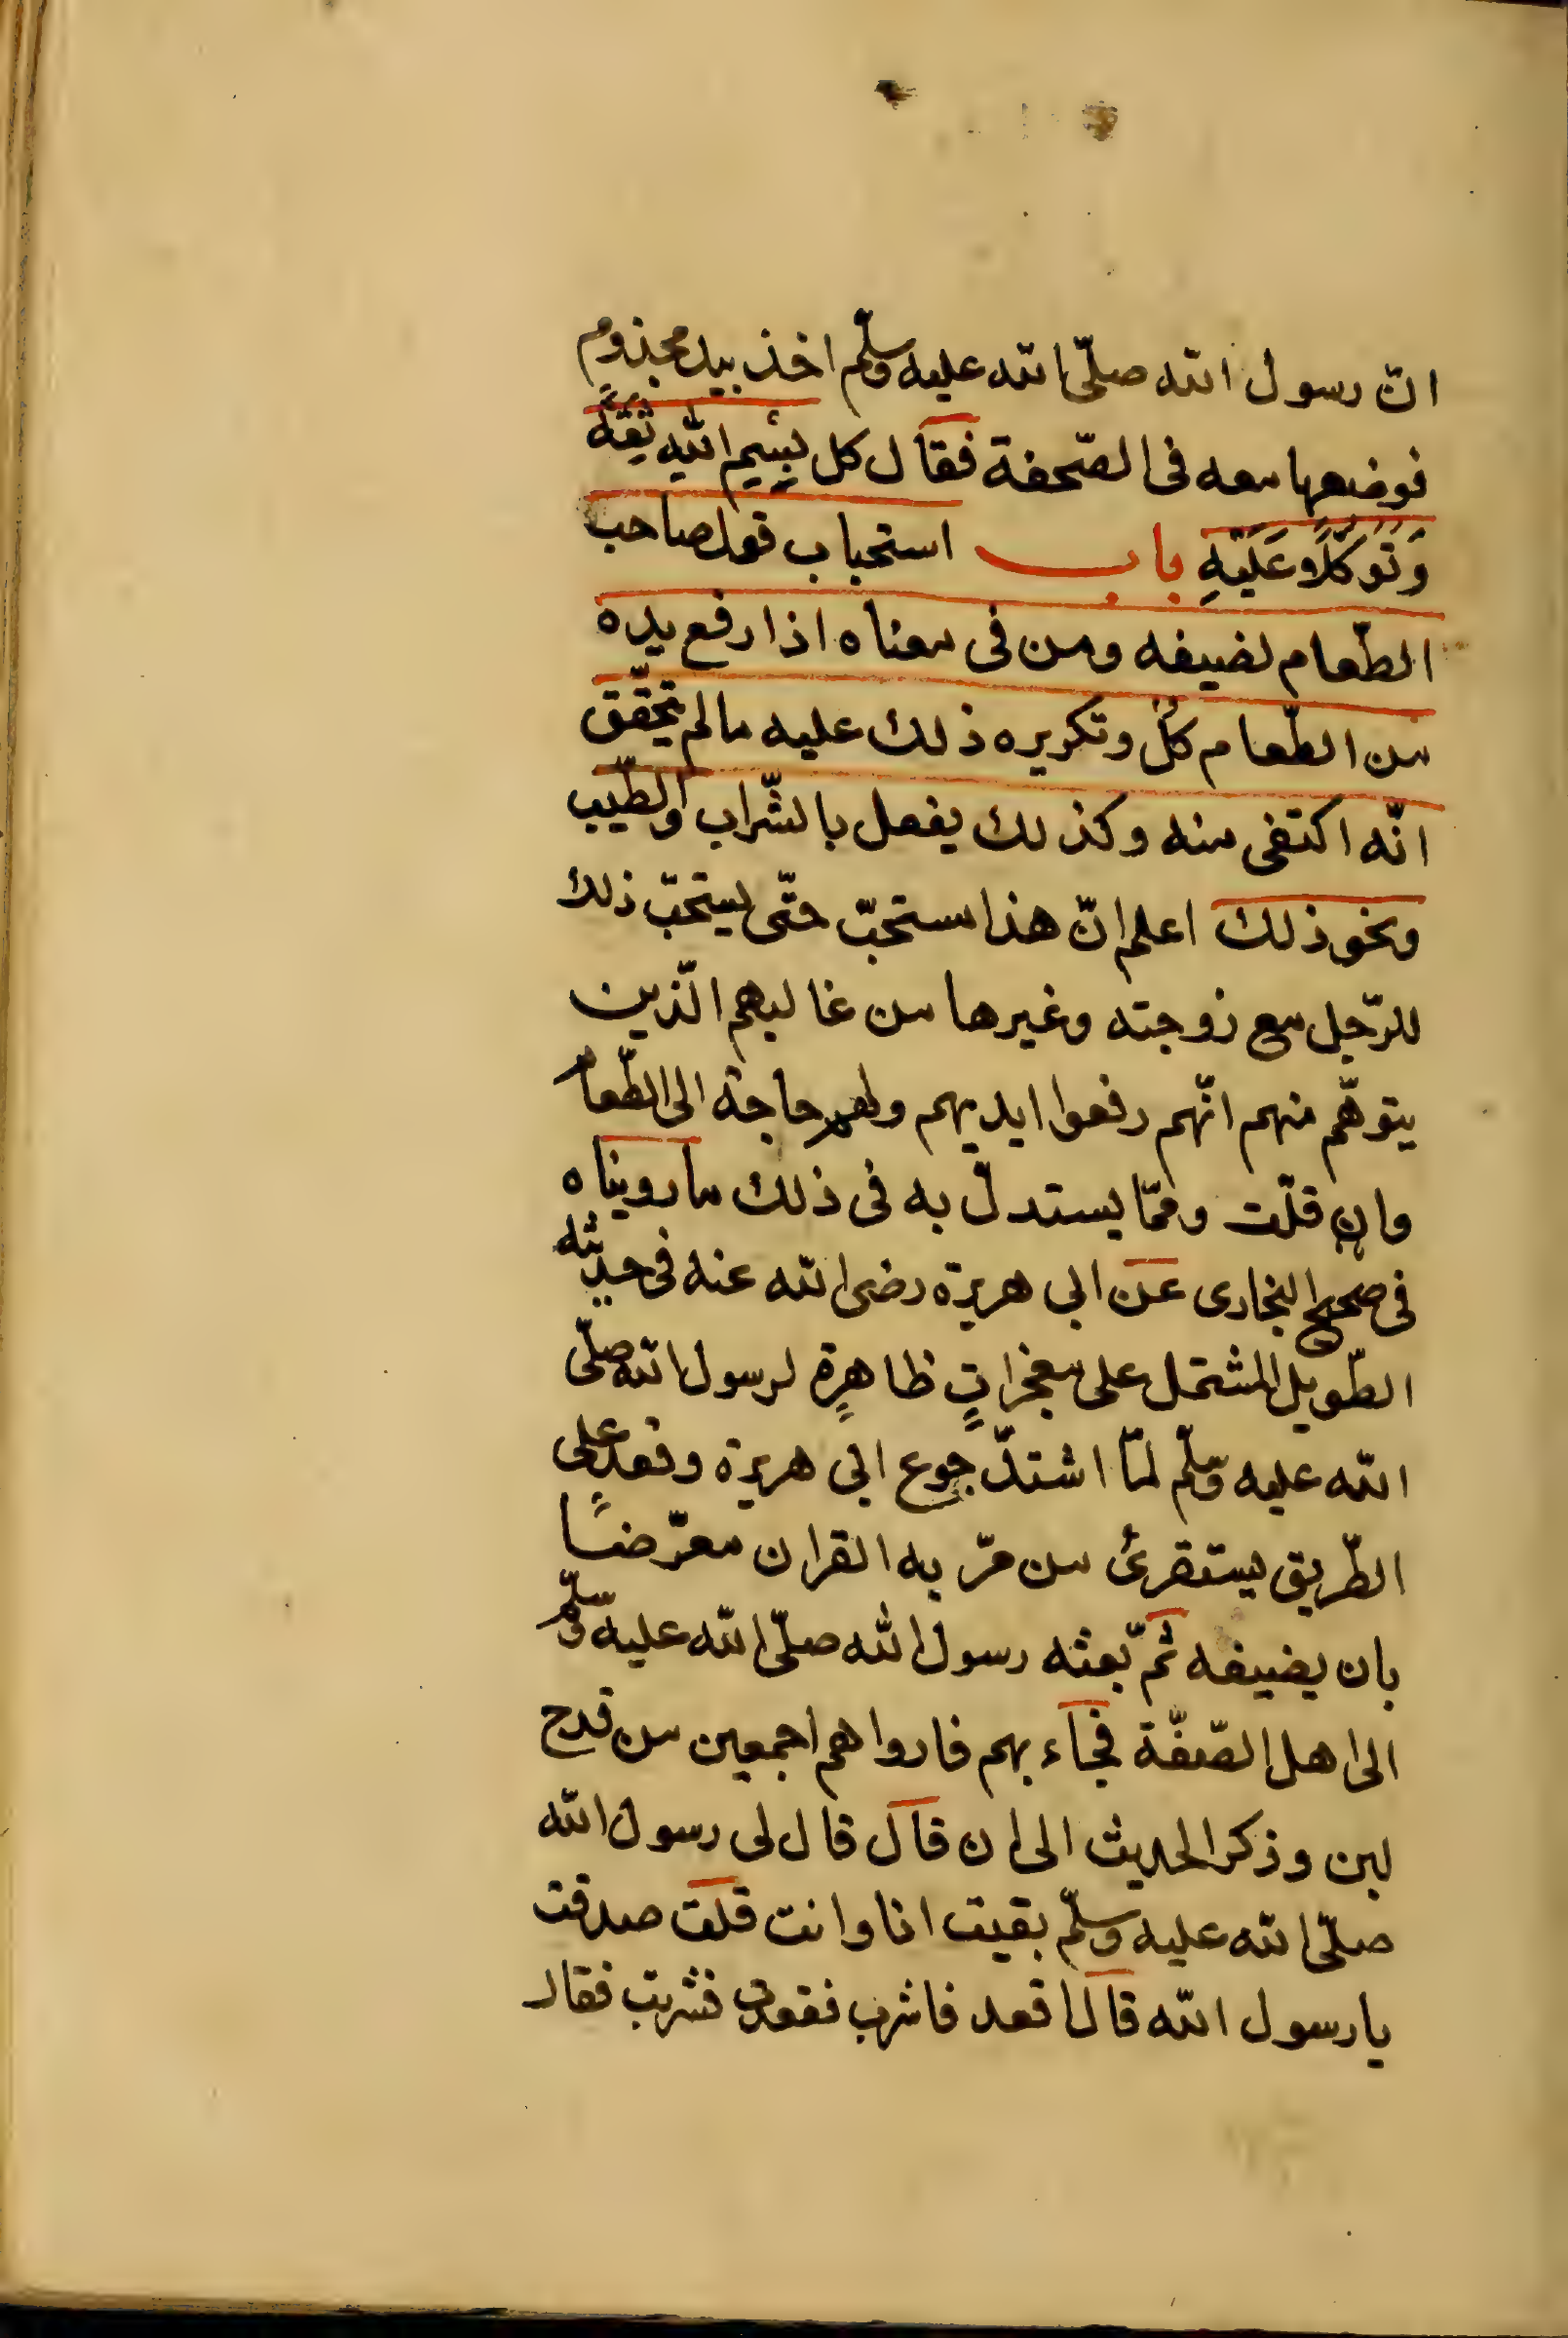 انّ رسول الله صلّى الله عليه وسلّم اخذ بيد مجذومٍ
فوضعها معه فى الصّحفة فقال كل بِسْمِ اللهِ ثِقَةً
وَتَوَكُّلًا عَلَيْهِ باب استحباب قول صاحب
الطّعام لضيفه ومن فى معناه اذا رفع يده
من الطّعام كُلْ وتكريره ذلك عليه مالم يتحقّق
انّه اكتفى منه وكذلك يفعل بالشّراب والطّيب
ونحو ذلك اعلم انّ هذا مستحبّ حتّى يستحبّ ذلك
للرّجل مع زوجته وغيرها من غاليهم الّذين
يتوهّم منهم انّهم رفعوا ايديهم ولهم حاجة الى الطّعام
وان قلّت وممّا يستدلّ به فى ذلك ما رويناه
فى صحيح البخارى عن ابى هريرة رضى الله عنه فى حديثه
الطّويل المشتمل على معجزاتٍ ظاهرةٍ لرسول الله صلّى
الله عليه وسلّم لمّا اشتدّ جوع ابى هريرة وقعد على
الطّريق يستقرئ من مرّ به القران معرّضًا
بان يضيفه ثمّ بعثه رسول الله صلّى الله عليه وسلّم
الى اهل الصّفّة فجاء بهم فارواهم اجمعين من قدح
لبن وذكر الحديث الى ان قال قال لى رسول الله
صلّى الله عليه وسلّم بقيت انا وانت قلت صدقت
يا رسول الله قال اقعد فاشرب فقعدت فشربت فقال